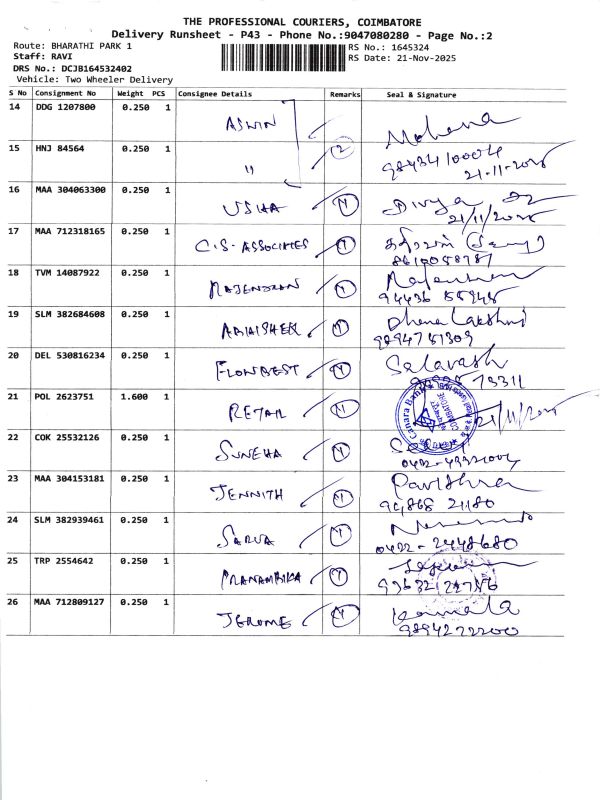 THE PROFESSIONAL COURIERS, COIMBATORE
Delivery Runsheet - P43 - Phone No.:9047080280 - Page No.:2
Route: BHARATHI PARK 1
RS No.: 1645324
Staff: RAVI
RS Date: 21-Nov-2025
DRS No.: DCJB164532402
Vehicle: Two Wheeler Delivery
S No Consignment No Weight PCS Consignee Details Remarks Seal & Signature
14 DDG 1207800 0.250 1 ASWIN Mohana
15 HNJ 84564 0.250 1 " 2 9843410004
21-11-2025
16 MAA 304063300 0.250 1 USHA Divya
21/11/2025
17 MAA 712318165 0.250 1 C.S-ASSOCIATES
8610058787
18 TVM 14087922 0.250 1 RAJENDRAN
94436 55945
19 SLM 382684608 0.250 1 ABHISHEK Dhana Lakshmi
9894781309
20 DEL 530816234 0.250 1 FLONBEST
73311
21 POL 2623751 1.600 1 RETAIL Canara Bank COIMBATORE 21/11/2025
22 COK 25532126 0.250 1 SUNEHA
23 MAA 304153181 0.250 1 JENNITH Pavithra
94868 21180
24 SLM 382939461 0.250 1 SARVA
0422-2448680
25 TRP 2554642 0.250 1 PRANAMBIKA
26 MAA 712809127 0.250 1 JEROME Kamala
9894272200